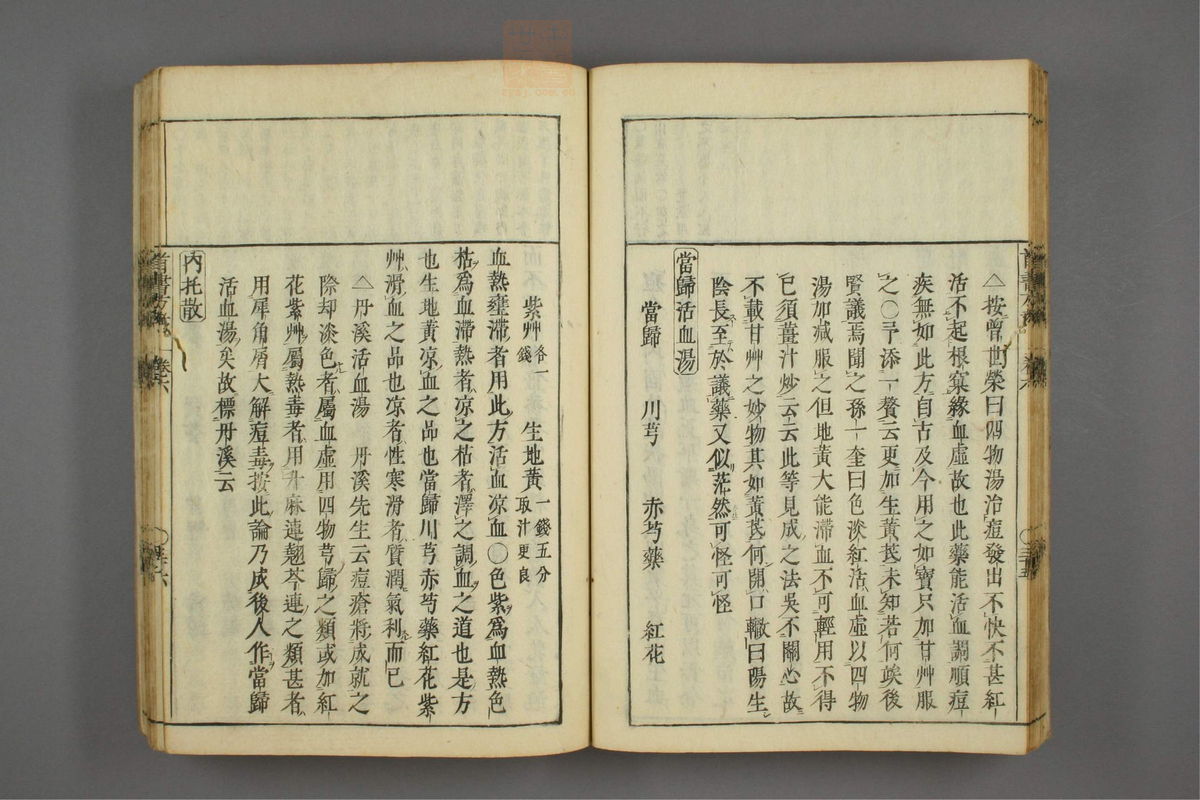 △按曾世榮曰四物湯治痘發出不快不甚紅
活不起根窠緣血虛故也此藥能活血調順痘
疾無如此方自古及今用之如寶只加甘艸服
之〇予添一贅云更加生黃芪未知若何竢後
賢議焉聞之孫一奎曰色淡紅活血虛以四物
湯加減服之但地黃大能滯血不可輕用不得
已須薑汁炒云云此等見成之法吳不關心故
不載甘艸之妙物其如黃芪何開口轍曰陽生
陰長至於議藥又似茫然可怪可怪
當歸活血湯
當歸 川芎 赤芍藥 紅花
紫艸各一錢 生地黃一錢五分取汁更良
血熱壅滯者用此方活血凉血〇色紫爲血熱色
枯爲血滯熱者凉之枯者澤之調血之道也是方
也生地黃凉血之品也當歸川芎赤芍藥紅花紫
艸滑血之品也凉者性寒滑者質潤氣利而已
△丹溪活血湯 丹溪先生云痘瘡將成就之
際却淡色者屬血虛用四物芎歸之類或加紅
花紫艸屬熱毒者用升麻連翹芩連之類甚者
用犀角屑大解痘毒按此論乃成後人作當歸
活血湯矣故標丹溪云
內托散
卷六